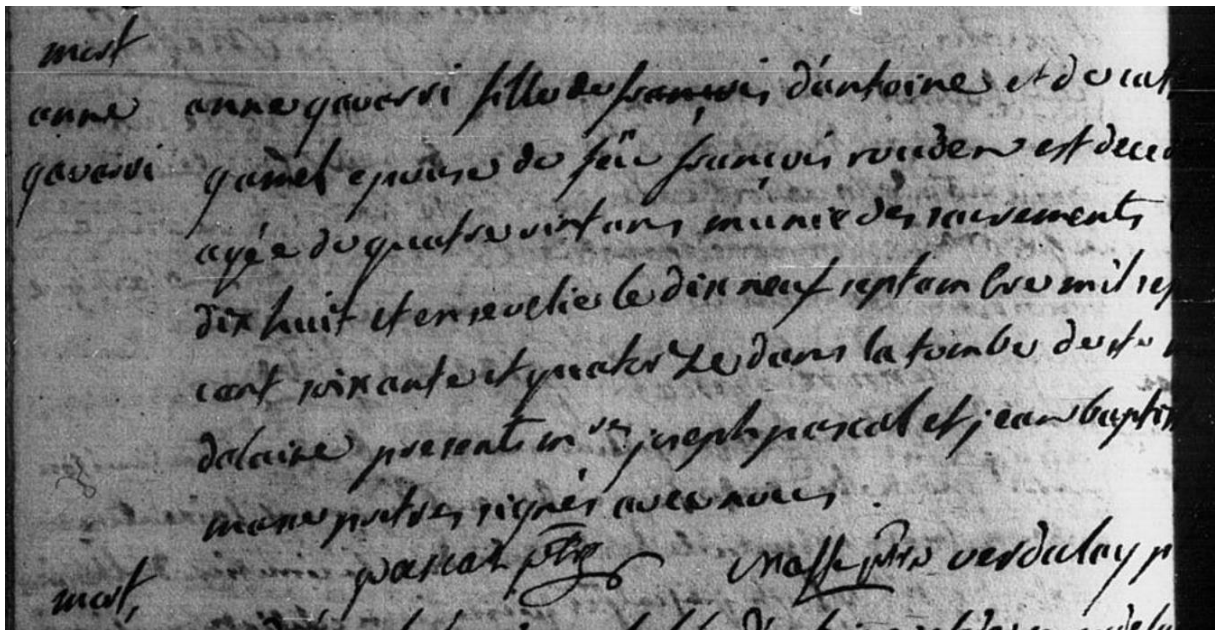 mort
anne
gavarri
anne gavarri fille de françois d'antoine et de cat
gamel epouse de feu françois rouden est deced
agée de quatre vint ans munie des sacrements
dix huit et ensevelie le dix neuf septambre mil sep
cent soixante et quatorze dans la tombe de ste
dalaine presents mrs joseph pascal et jean baptis
masse pretres signés avec nous .
pascal ptre masse ptre verdulay p
mort,